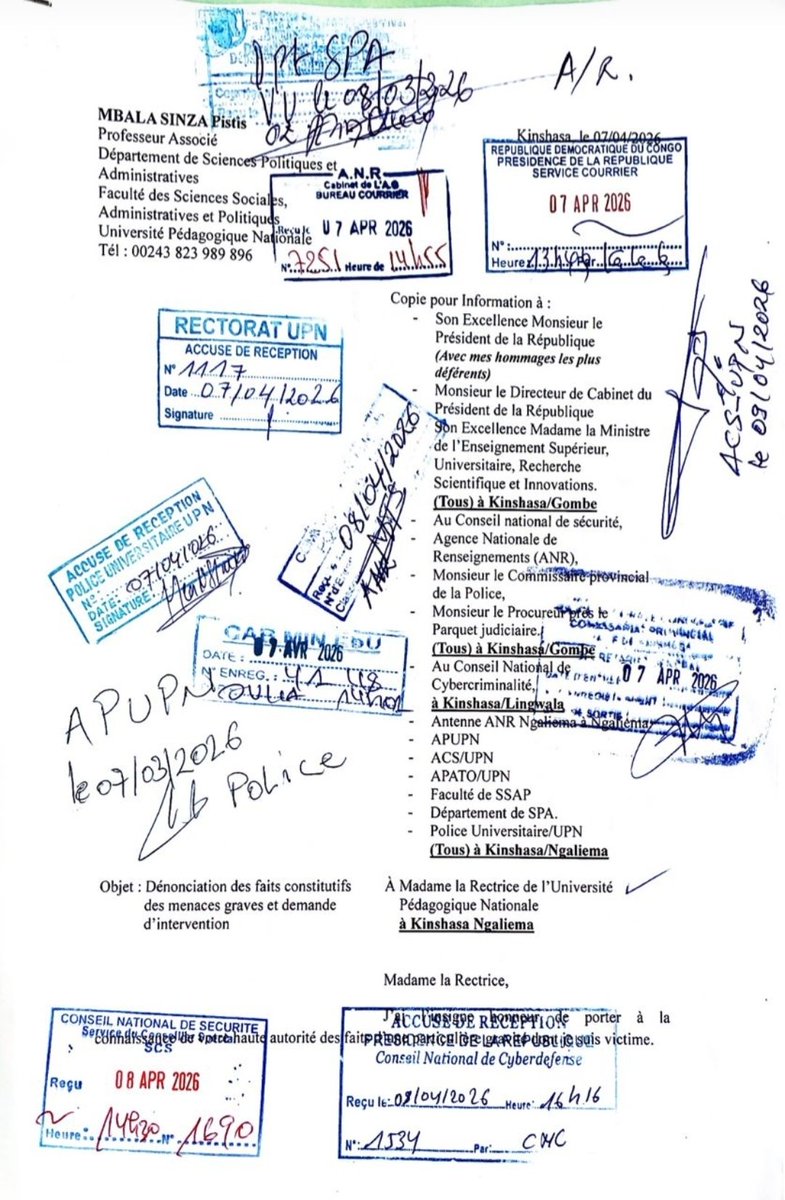 Dpt SPA
VU le 08/03/2026
A/R.
MBALA SINZA Pistis
Professeur Associé
Département de Sciences Politiques et
Administratives
Faculté des Sciences Sociales,
Administratives et Politiques
Université Pédagogique Nationale
Tél : 00243 823 989 896
Kinshasa, le 07/04/2026
A.N.R
Cabinet de L'A.G
BUREAU COURRIER
Reçu le 07 APR 2026
N° 7251 Heure de 14h55
REPUBLIQUE DEMOCRATIQUE DU CONGO
PRESIDENCE DE LA REPUBLIQUE
SERVICE COURRIER
07 APR 2026
N°:
Heure:
RECTORAT UPN
ACCUSE DE RECEPTION
N° 1117
Date 07/04/2026
Signature
Copie pour Information à :
- Son Excellence Monsieur le
Président de la République
(Avec mes hommages les plus
déférents)
- Monsieur le Directeur de Cabinet du
Président de la République
Son Excellence Madame la Ministre
de l'Enseignement Supérieur,
Universitaire, Recherche
Scientifique et Innovations.
(Tous) à Kinshasa/Gombe
- Au Conseil national de sécurité,
- Agence Nationale de
Renseignements (ANR),
- Monsieur le Commissaire provincial
de la Police,
- Monsieur le Procureur près le
Parquet judiciaire.
(Tous) à Kinshasa/Gombe
- Au Conseil National de
Cybercriminalité,
à Kinshasa/Lingwala
- Antenne ANR Ngaliema à Ngaliema
- APUPN
- ACS/UPN
- APATO/UPN
- Faculté de SSAP
- Département de SPA.
- Police Universitaire/UPN
(Tous) à Kinshasa/Ngaliema
ACS-UPN
le 09/04/2026
08/04/2026
ACCUSE DE RECEPTION
POLICE UNIVERSITAIRE UPN
N°:
DATE: 07/04/2026
SIGNATURE:
CAB MIN EDU
DATE : 07 AVR 2026
N° ENREG.: 4148
COMMISSARIAT PROVINCIAL
07 APR 2026
APUPN
le 07/03/2026
Police
Objet : Dénonciation des faits constitutifs
des menaces graves et demande
d'intervention
À Madame la Rectrice de l'Université
Pédagogique Nationale
à Kinshasa Ngaliema
Madame la Rectrice,
J'ai l'insigne honneur de porter à la
connaissance de votre haute autorité des faits d'une particulière gravité dont je suis victime.
CONSEIL NATIONAL DE SECURITE
SCS
Reçu 08 APR 2026
Heure: 14h30 N° 1690
ACCUSE DE RECEPTION
PRESIDENCE DE LA REPUBLIQUE
Conseil National de Cyberdefense
Reçu le: 08/04/2026 Heure: 16h16
N°: 1534 Par: CNC